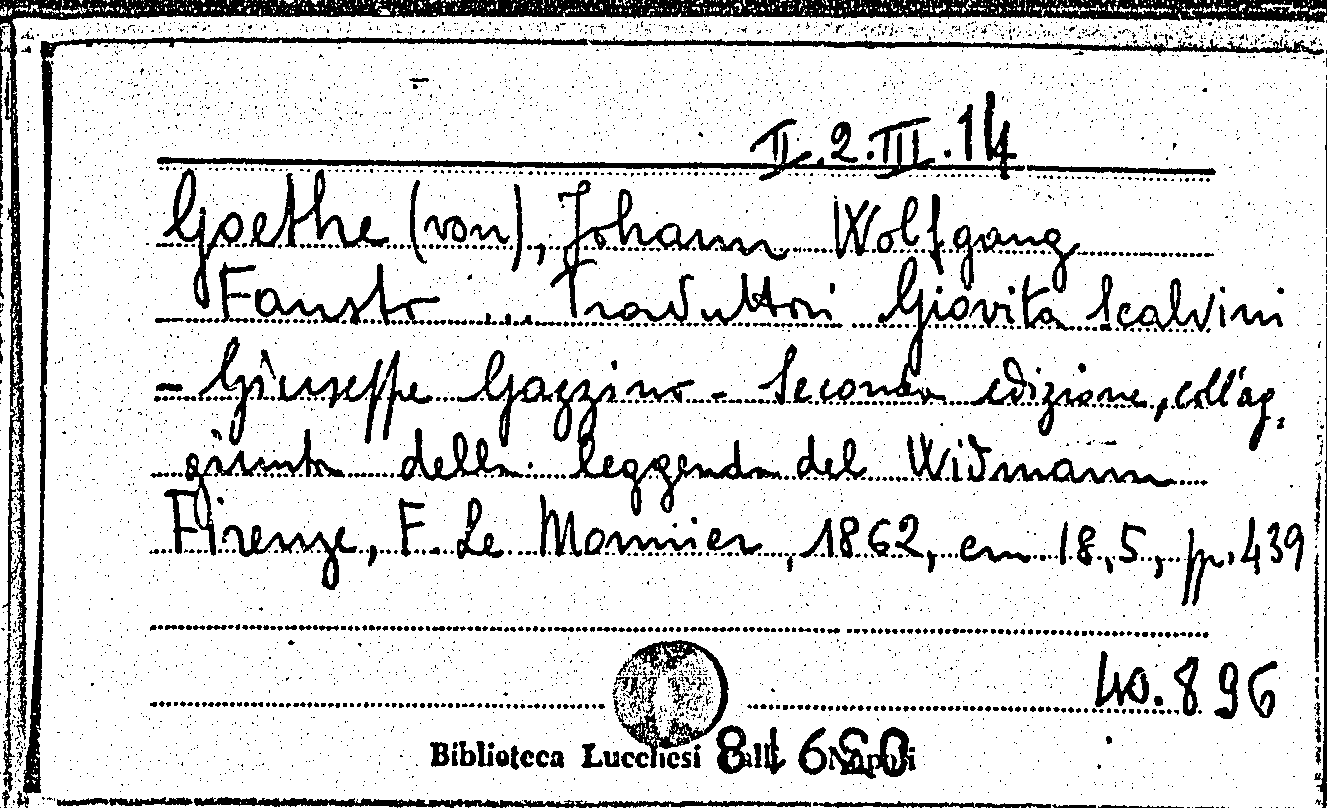 II.2.III.14
Goethe (von), Johann Wolfgang
Fausto ... Traduttori Giovita Scalvini
- Giuseppe Gazzino - Seconda edizione, coll'ag,
giunta della leggenda del Widmann
Firenze, F. Le Monnier, 1862, cm 18,5, pp. 439
40.896
Biblioteca Lucchesi Palli Napoli